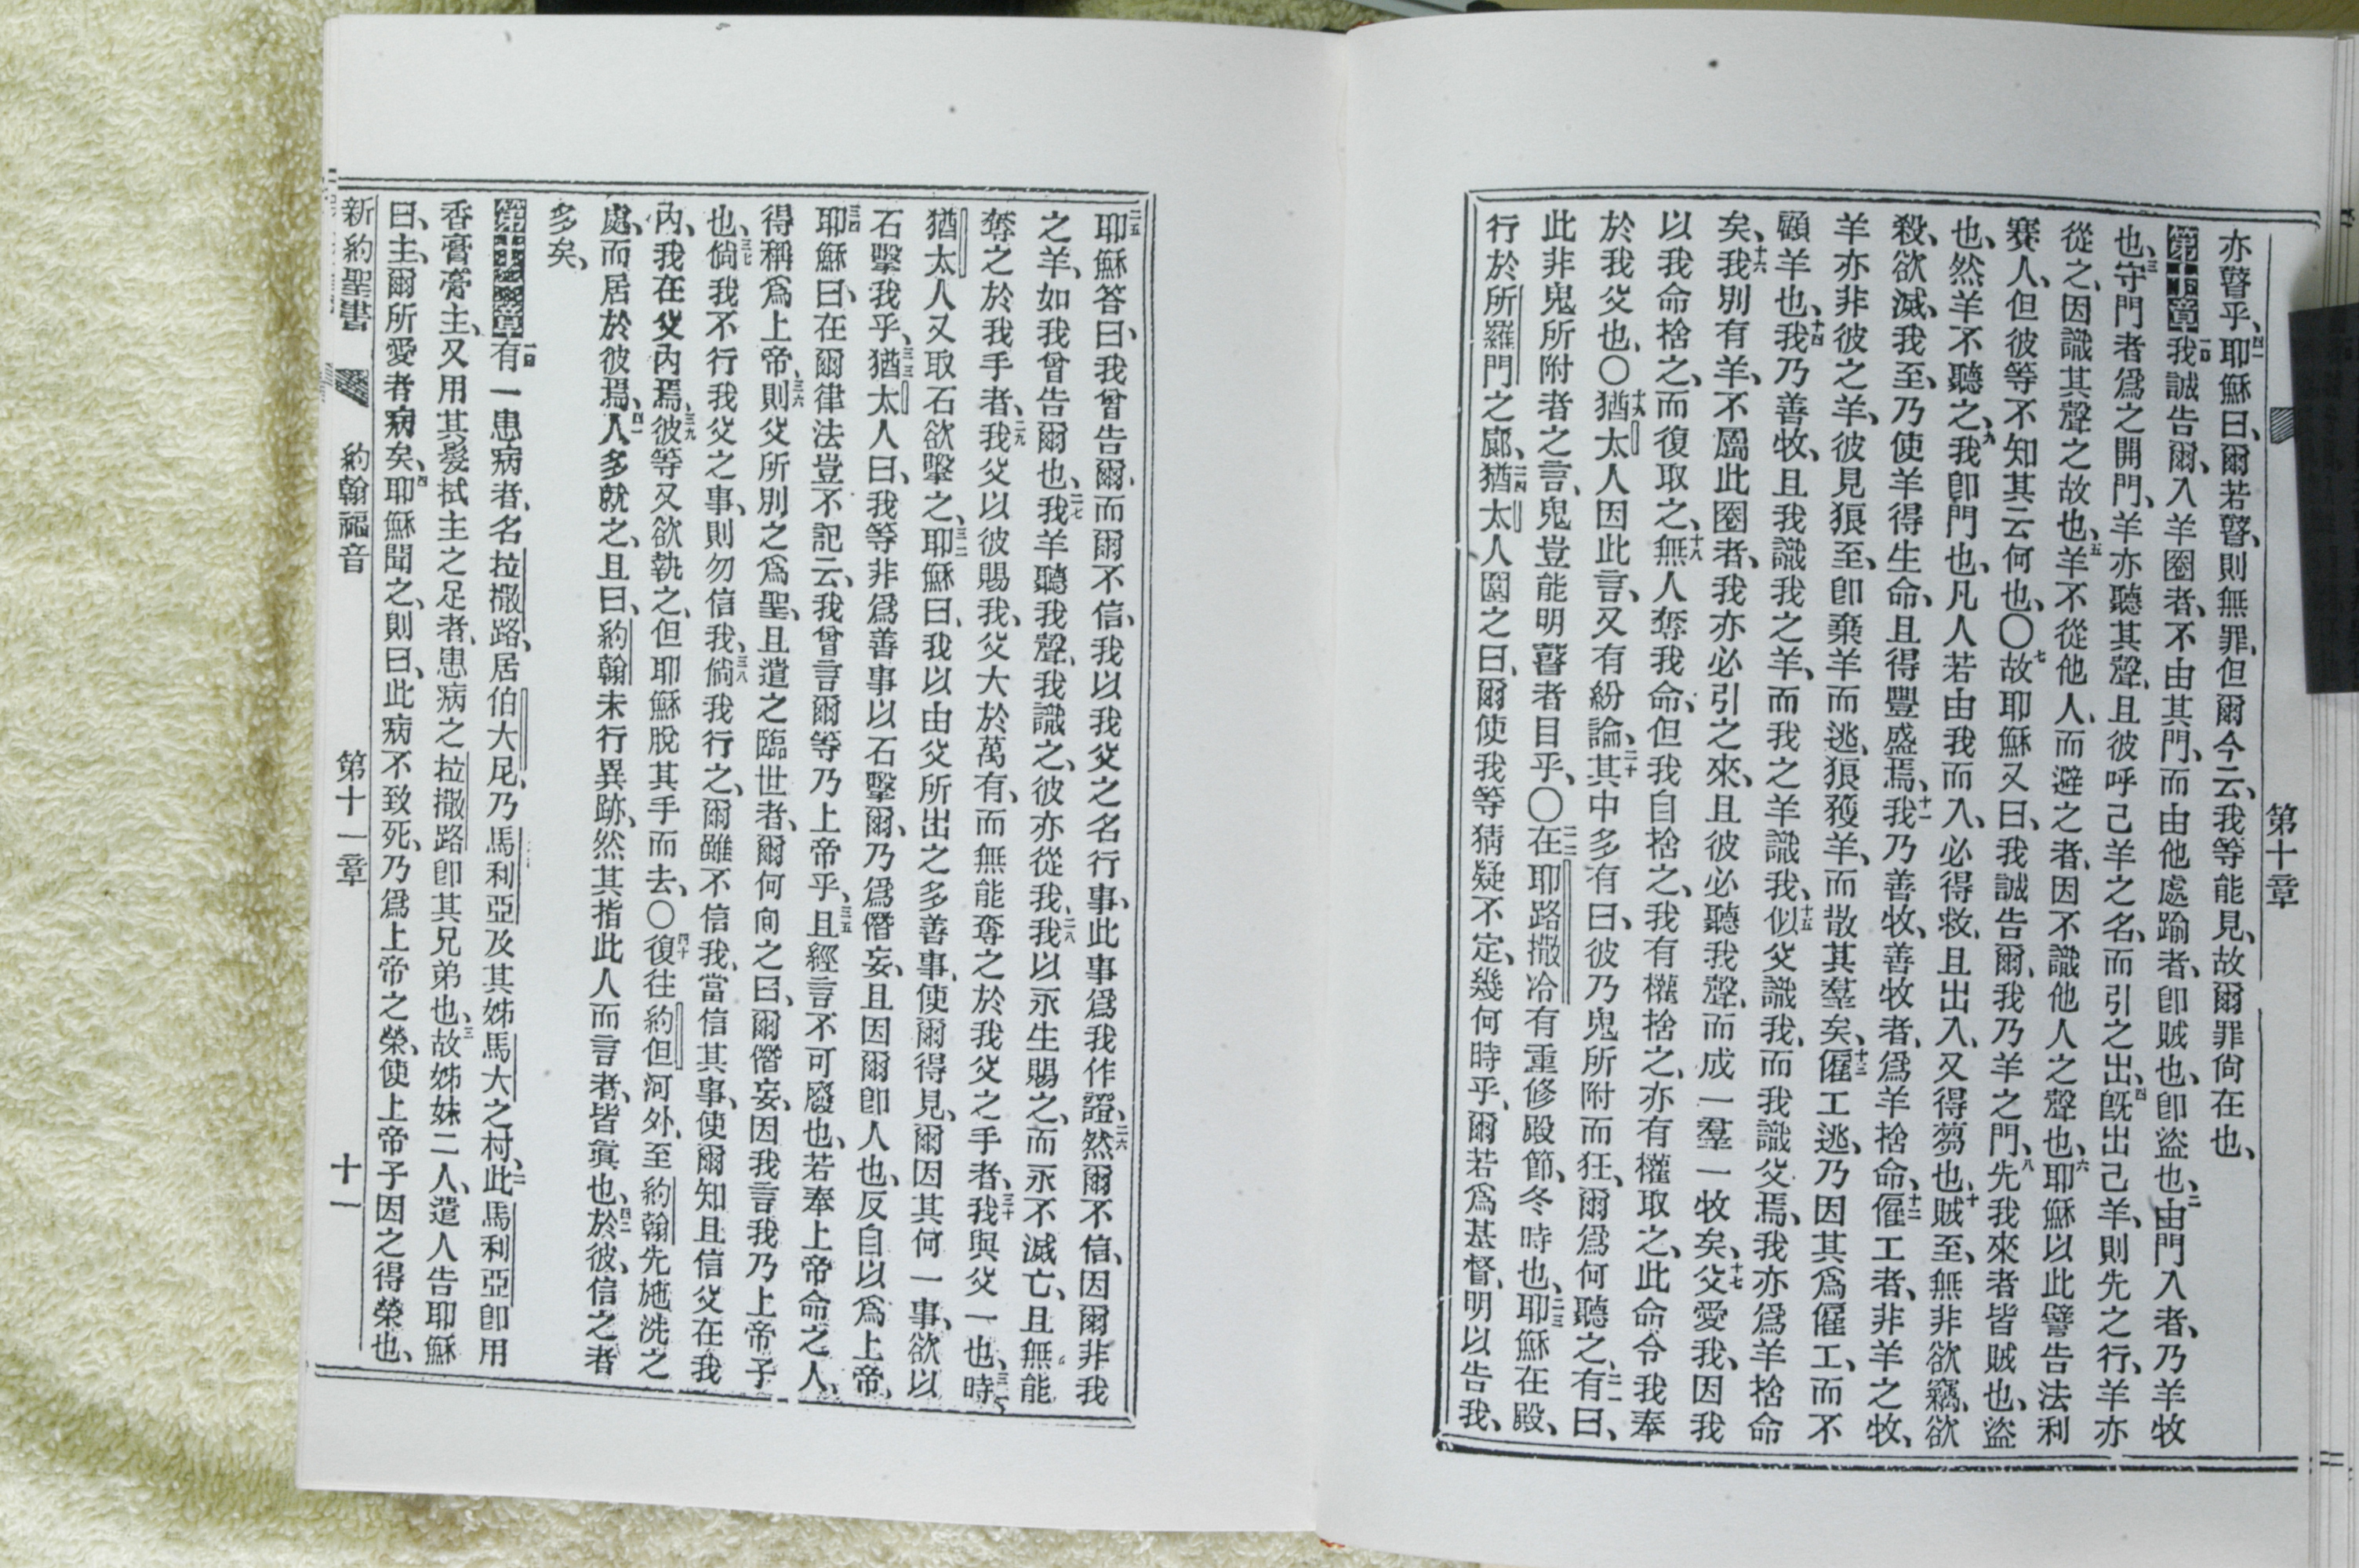 第十章
亦瞽乎、四一耶穌曰、爾若瞽、則無罪、但爾今云、我等能見、故爾罪尙在也、
第十章一節我誠告爾、入羊圈者、不由其門、而由他處踰者、卽賊也、卽盜也、二由門入者、乃羊牧
也、三守門者爲之開門、羊亦聽其聲、且彼呼己羊之名、而引之出、四旣出己羊、則先之行、羊亦
從之、因識其聲之故也、五羊不從他人、而避之者、因不識他人之聲也、六耶穌以此譬告法利
賽人、但彼等不知其云何也、〇七故耶穌又曰、我誠告爾、我乃羊之門、八先我來者皆賊也、盜
也、然羊不聽之、九我卽門也、凡人若由我而入、必得救、且出入、又得芻也、十賊至、無非欲竊、欲
殺、欲滅、我至、乃使羊得生命、且得豐盛焉、十一我乃善牧、善牧者、爲羊捨命、十二僱工者、非羊之牧、
羊亦非彼之羊、彼見狼至、卽棄羊而逃、狼獲羊、而散其羣矣、十三僱工逃、乃因其爲僱工、而不
顧羊也、十四我乃善牧、且我識我之羊、而我之羊識我、十五似父識我、而我識父焉、我亦爲羊捨命
矣、十六我別有羊、不屬此圈者、我亦必引之來、且彼必聽我聲、而成一羣一牧矣、十七父愛我、因我
以我命捨之、而復取之、十八無人奪我命、但我自捨之、我有權捨之、亦有權取之、此命令我奉
於我父也、〇十九猶太人因此言、又有紛論、二十其中多有曰、彼乃鬼所附而狂、爾爲何聽之、二一有曰、
此非鬼所附者之言、鬼豈能明瞽者目乎、〇二二在耶路撒冷有重修殿節、冬時也、二三耶穌在殿、
行於所羅門之廊、二四猶太人圍之曰、爾使我等猜疑不定、幾何時乎、爾若爲基督、明以告我、
二五耶穌答曰、我曾告爾、而爾不信、我以我父之名行事、此事爲我作證、二六然爾不信、因爾非我
之羊、如我曾告爾也、二七我羊聽我聲、我識之、彼亦從我、二八我以永生賜之、而永不滅亡、且無能
奪之於我手者、二九我父以彼賜我、父大於萬有、而無能奪之於我父之手者、三十我與父一也、三一時
猶太人又取石欲擊之、三二耶穌曰、我以由父所出之多善事、使爾得見、爾因其何一事、欲以
石擊我乎、三三猶太人曰、我等非爲善事以石擊爾、乃爲僭妄、且因爾卽人也、反自以爲上帝、
三四耶穌曰、在爾律法豈不記云、我曾言爾等乃上帝乎、三五且經言不可廢也、若奉上帝命之人、
得稱爲上帝、三六則父所別之爲聖、且遣之臨世者、爾何向之曰、爾僭妄、因我言我乃上帝子
也、三七倘我不行我父之事、則勿信我、三八倘我行之、爾雖不信我、當信其事、使爾知且信父在我
內、我在父內焉、三九彼等又欲執之、但耶穌脫其手而去、〇四十復往約但河外、至約翰先施洗之
處、而居於彼焉、四一人多就之、且曰、約翰未行異跡、然其指此人而言者、皆眞也、四二於彼、信之者
多矣、
第十一章一節有一患病者、名拉撒路、居伯大尼、乃馬利亞及其姊馬大之村、二此馬利亞卽用
香膏膏主、又用其髮拭主之足者、患病之拉撒路卽其兄弟也、三故姊妹二人、遣人告耶穌
曰、主、爾所愛者病矣、四耶穌聞之、則曰、此病不致死、乃爲上帝之榮、使上帝子因之得榮也、
新約聖書 約翰福音 第十一章 十一